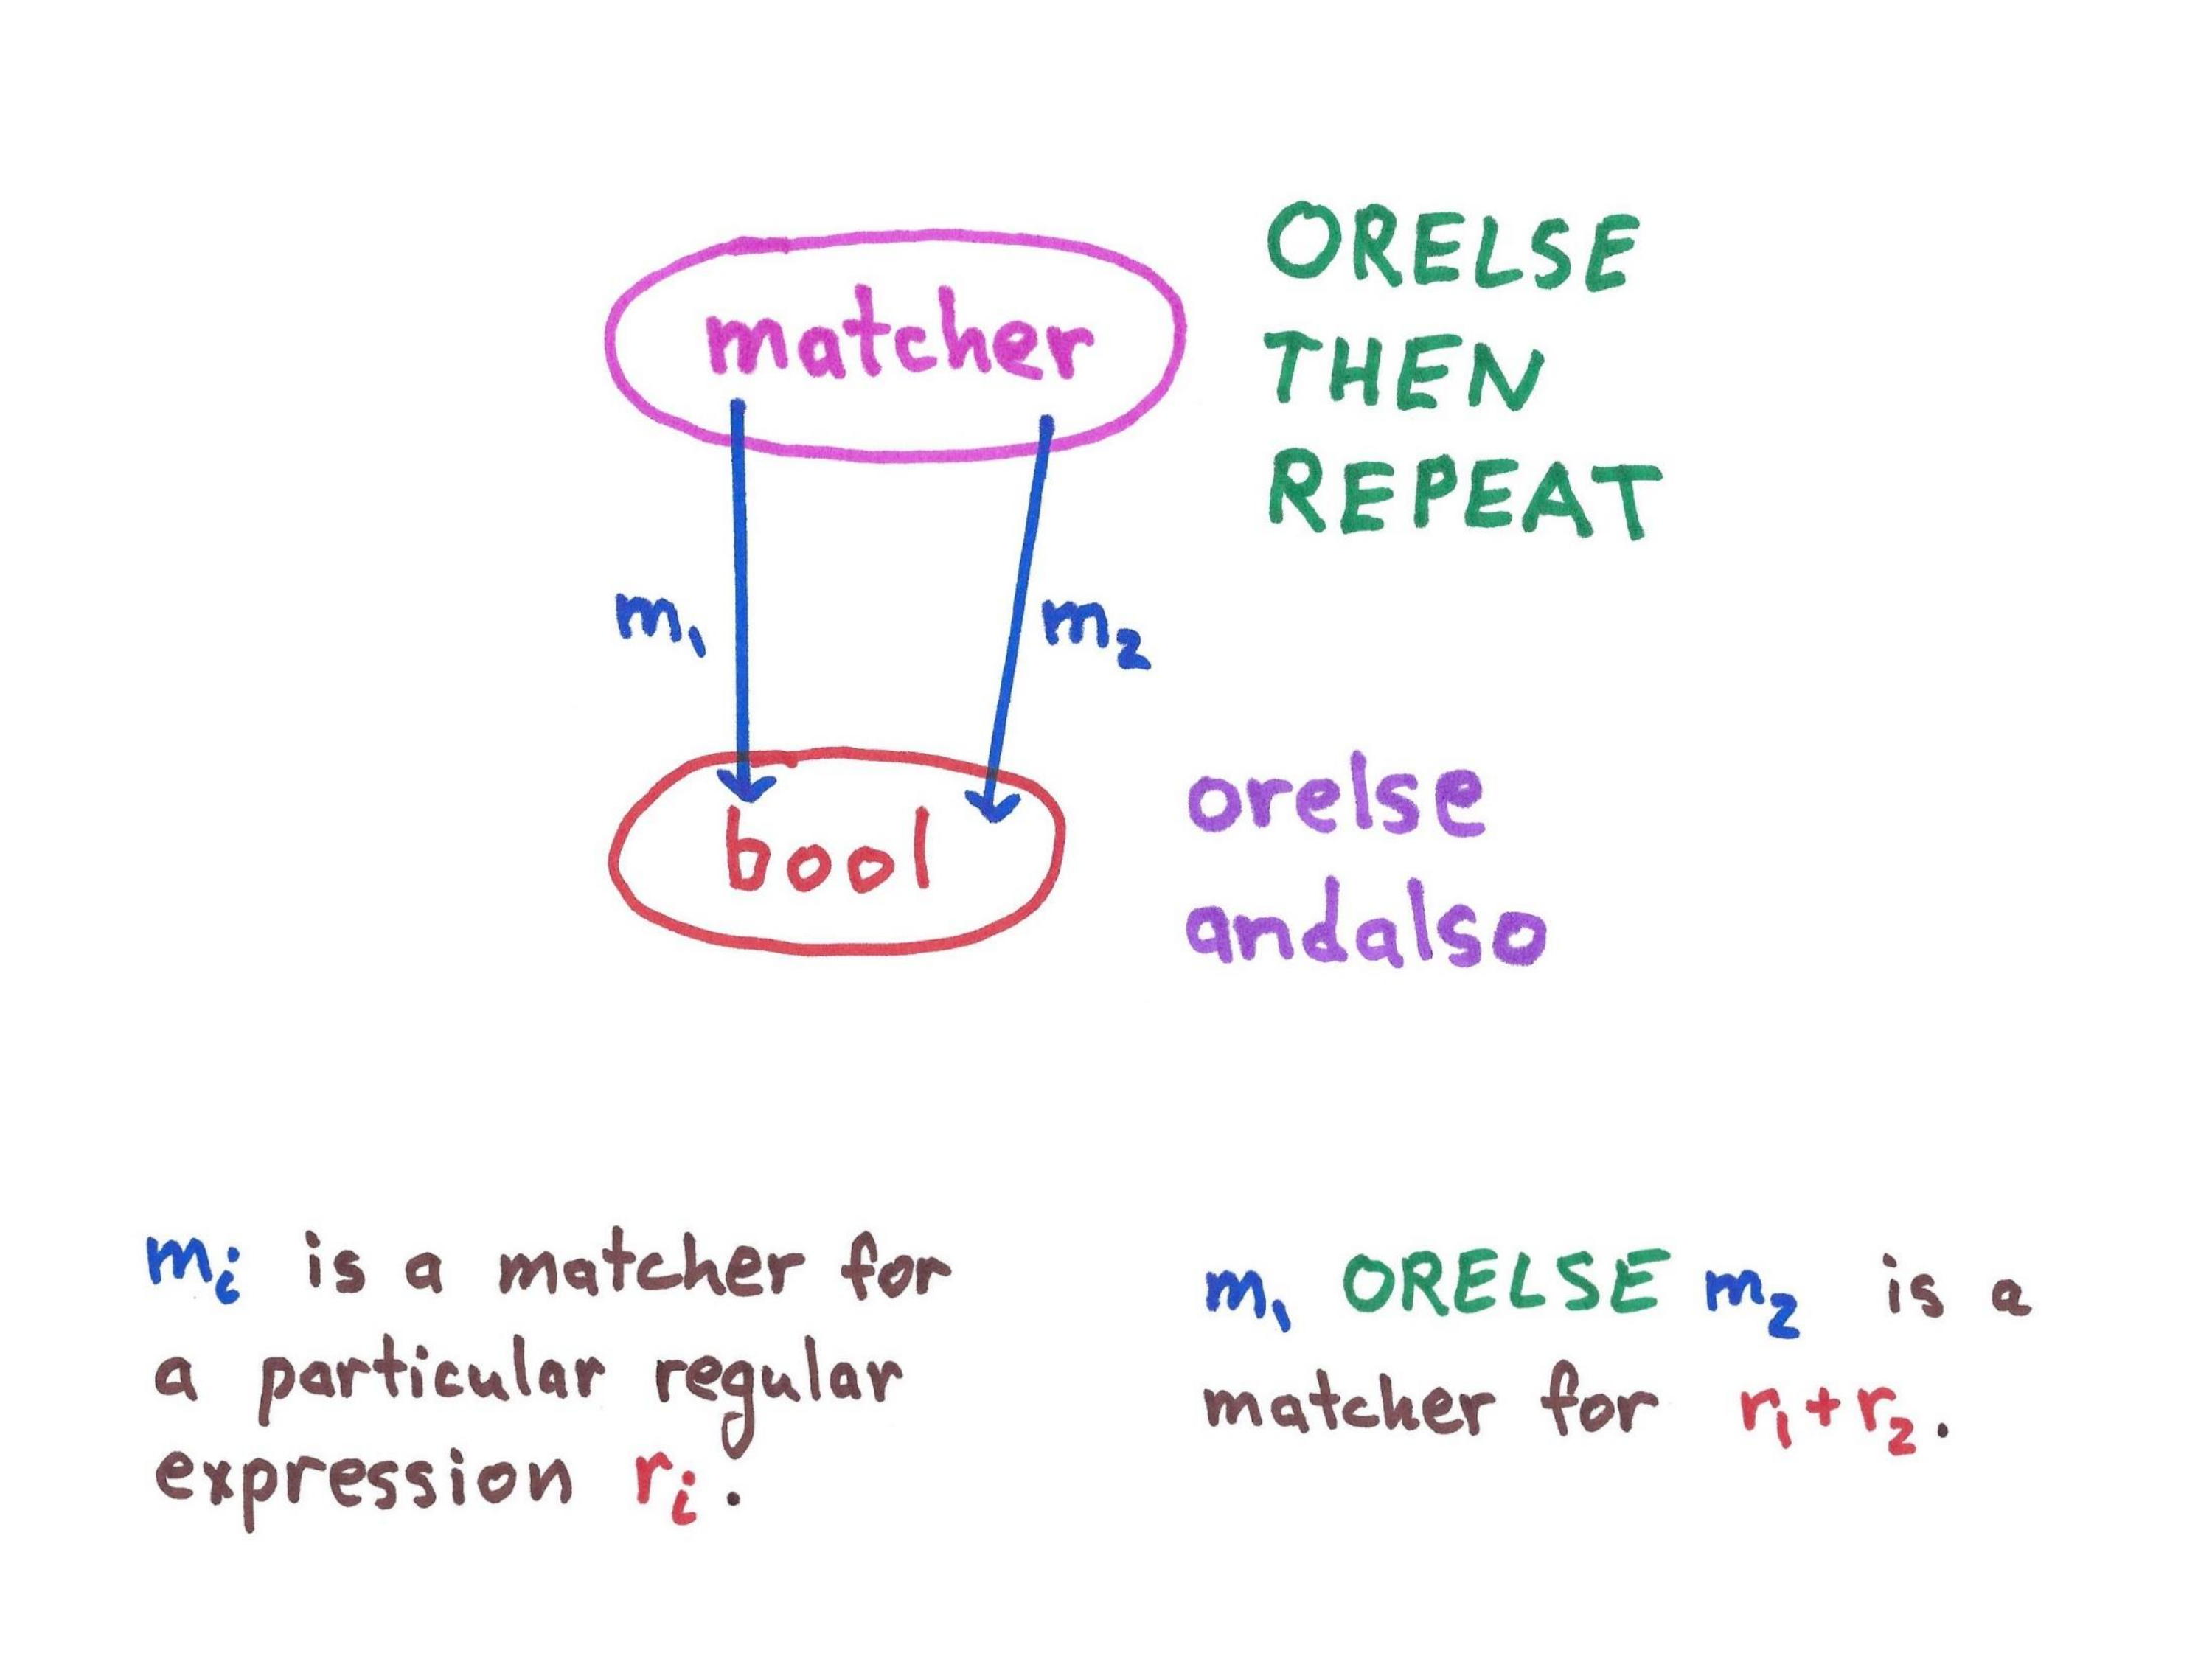 matcher
ORELSE
THEN
REPEAT
m₁
m₂
bool
orelse
andalso
mᵢ is a matcher for
a particular regular
expression rᵢ.
m₁ ORELSE m₂ is a
matcher for r₁+r₂.